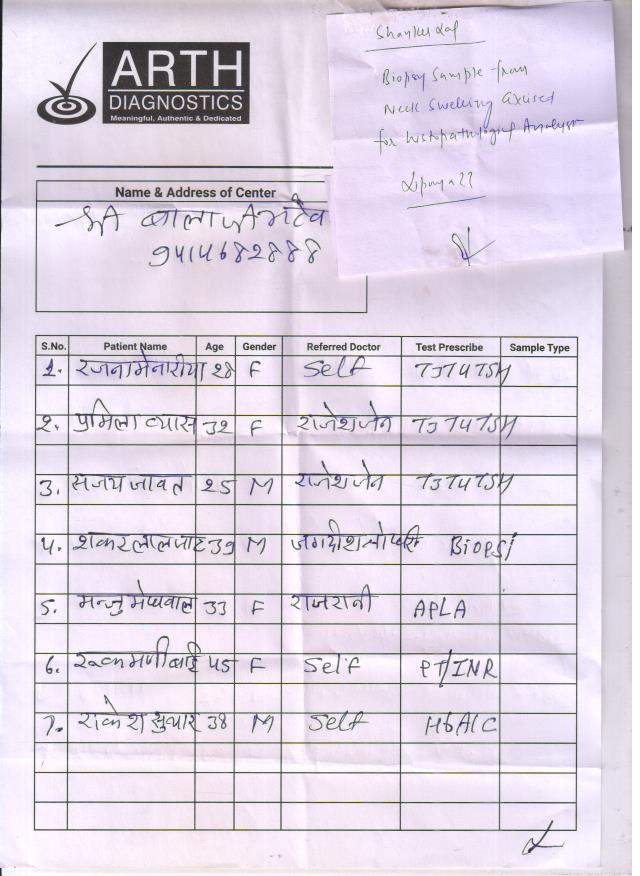 ARTH
DIAGNOSTICS
Meaningful, Authentic & Dedicated
Shanker Lal
Biopsy Sample from
Neck Swelling excised
for histopathological Analysis
Lipoma ??
Name & Address of Center
श्री बालाजी
9414682888
S.No. Patient Name Age Gender Referred Doctor Test Prescribe Sample Type
1. रजना मेनारीया 28 F Self T3T4TSH
2. प्रमिला व्यास 32 F राजेश जेन T3T4TSH
3. संजय जावत 25 M राजेश जेन T3T4TSH
4. शंकर लाल जाट 39 M जगदीश Biopsi
5. मन्जु मेघवाल 33 F राजरानी APLA
6. रूकमणी बाई 45 F Self PT/INR
7. राकेश सुथार 38 M Self HbA1C